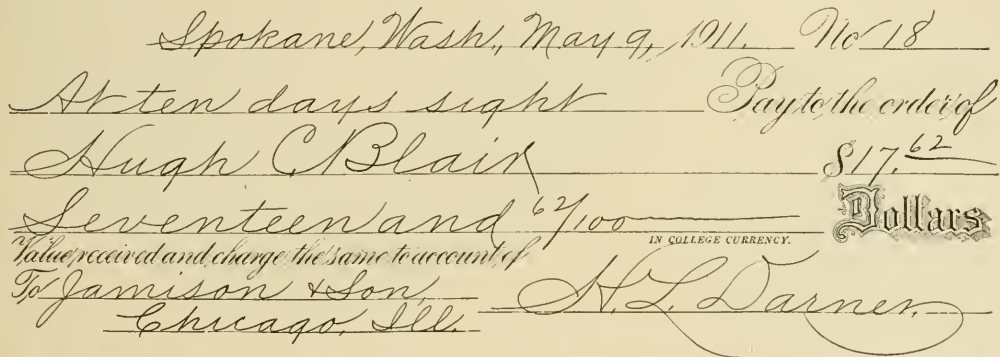 Spokane, Wash., May 9, 1911. No 18
At ten days sight Pay to the order of
Hugh C Blair $17.62
Seventeen and 62/100 Dollars
IN COLLEGE CURRENCY.
Value received and charge the same to account of
To Jamison & Son,
Chicago, Ill. H. L. Darner.